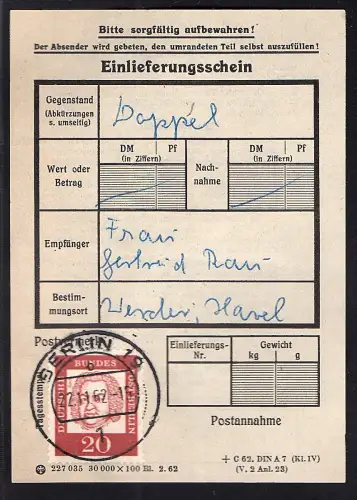 Bitte sorgfältig aufbewahren!
Der Absender wird gebeten, den umrandeten Teil selbst auszufüllen!
Einlieferungsschein
Gegenstand
(Abkürzungen
s. umseitig)
Doppel
DM
(in Ziffern)
Pf
DM
(in Ziffern)
Pf
Wert oder
Betrag
Nach-
nahme
Empfänger
Frau
Gertrud Rau
Bestim-
mungsort
Werder, Havel
Postvermerk
BERLIN 19
22.11.62
Tagesstempel
DEUTSCHE BUNDESPOST BERLIN
20
Einlieferungs-
Nr.
Gewicht
kg
g
Postannahme
227 035 30 000 × 100 Bl. 2. 62
+ C 62. DIN A 7 (Kl. IV)
(V. 2 Anl. 23)